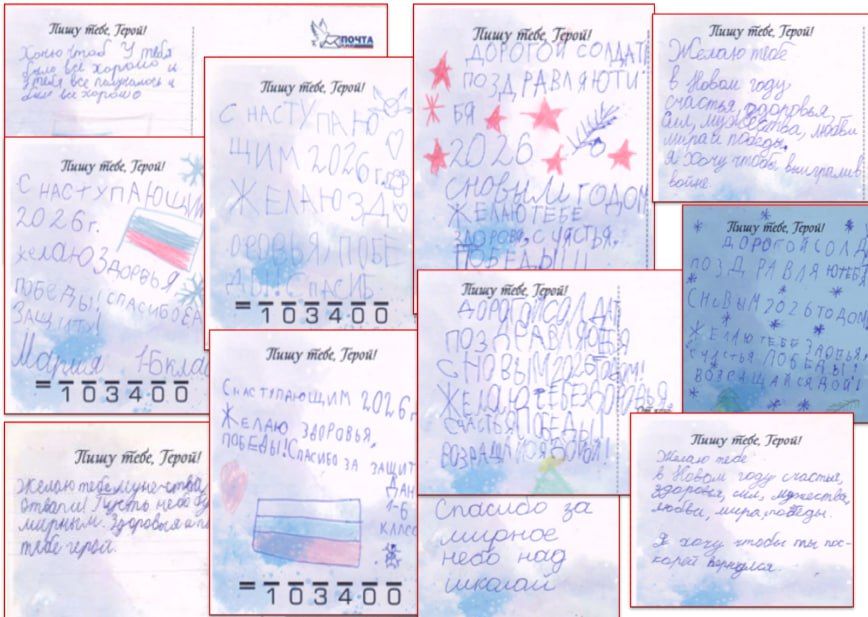 Пишу тебе, Герой!
ПОЧТА
Хочю чтоб У тебя
было все хорошо и
у тебя все получалось и
было все хорошо
Пишу тебе, Герой!
С НАСТУПАЮ
ЩИМ 2026 г.
ЖЕЛАЮ ЗД
ОРОВЬЯ, ПОБЕ
ДЫ! СПАСИБ
103400
Пишу тебе, Герой!
ДОРОГОЙ СОЛДАТ
ПОЗДРАВЛЯЮ ТИ
БЯ
2026
СНОВЫМ ГОДОМ
ЖЕЛАЮ ТЕБЕ
ЗДОРОВЯ, СЧЯСТЬЯ,
ПОБЕДЫ!!!
Пишу тебе, Герой!
Желаю тебе
в Новом году
счастья, здоровья,
сил, мужества, любви
мира и победы.
Я хочу чтобы выиграли в
войне.
Пишу тебе, Герой!
С НАСТУПАЮЩИМ
2026 г.
желаю ЗДОРВЬЯ
ПОБЕДЫ! СПАСИБО ЗА
ЗАЩИТУ!
Мария 1-Б клас
103400
Пишу тебе, Герой!
ДОРОГОЙ СОЛД
ПОЗДРАВЛЯЮ ТЕБЯ
СНОВЫМ 2026 ГОДОМ
ЖЕЛАЮ ТЕБЕ ЗДОВЬЯ,
СЧАСТЬЯ ПОБЕДЫ!
ВОЗРАЩАЙСЯ ДОЙ!
Пишу тебе, Герой!
ДОРОГОЙ СОЛДАТ
ПОЗДРАВЛЯЮ ТЕБЯ
С НОВЫМ 2026 ГОДОМ!
ЖЕЛАЮ ТЕБЕ ЗДОРОВЬЯ
СЧАСТЬЯ ПОБЕДЫ!
ВОЗРАЩАЙСЯ ДОМОЙ!
Пишу тебе, Герой!
С НАСТУПАЮЩИМ 2026 г
ЖЕЛАЮ ЗДОРОВЬЯ,
ПОБЕДЫ! СПАСИБО ЗА ЗАЩИТ
ДАН
1-Б
КЛАСС
103400
Пишу тебе, Герой!
Желаю тебе мужества
отваги! Пусть небо бу
мирным. Здоровья и по
тебе герой.
Спасибо за
мирное
небо над
школай
Пишу тебе, Герой!
Желаю тебе
в Новом году счастья,
здоровья, сил, мужества,
любви, мира, победы.
Я хочу чтобы ты пос-
корей вернулся.